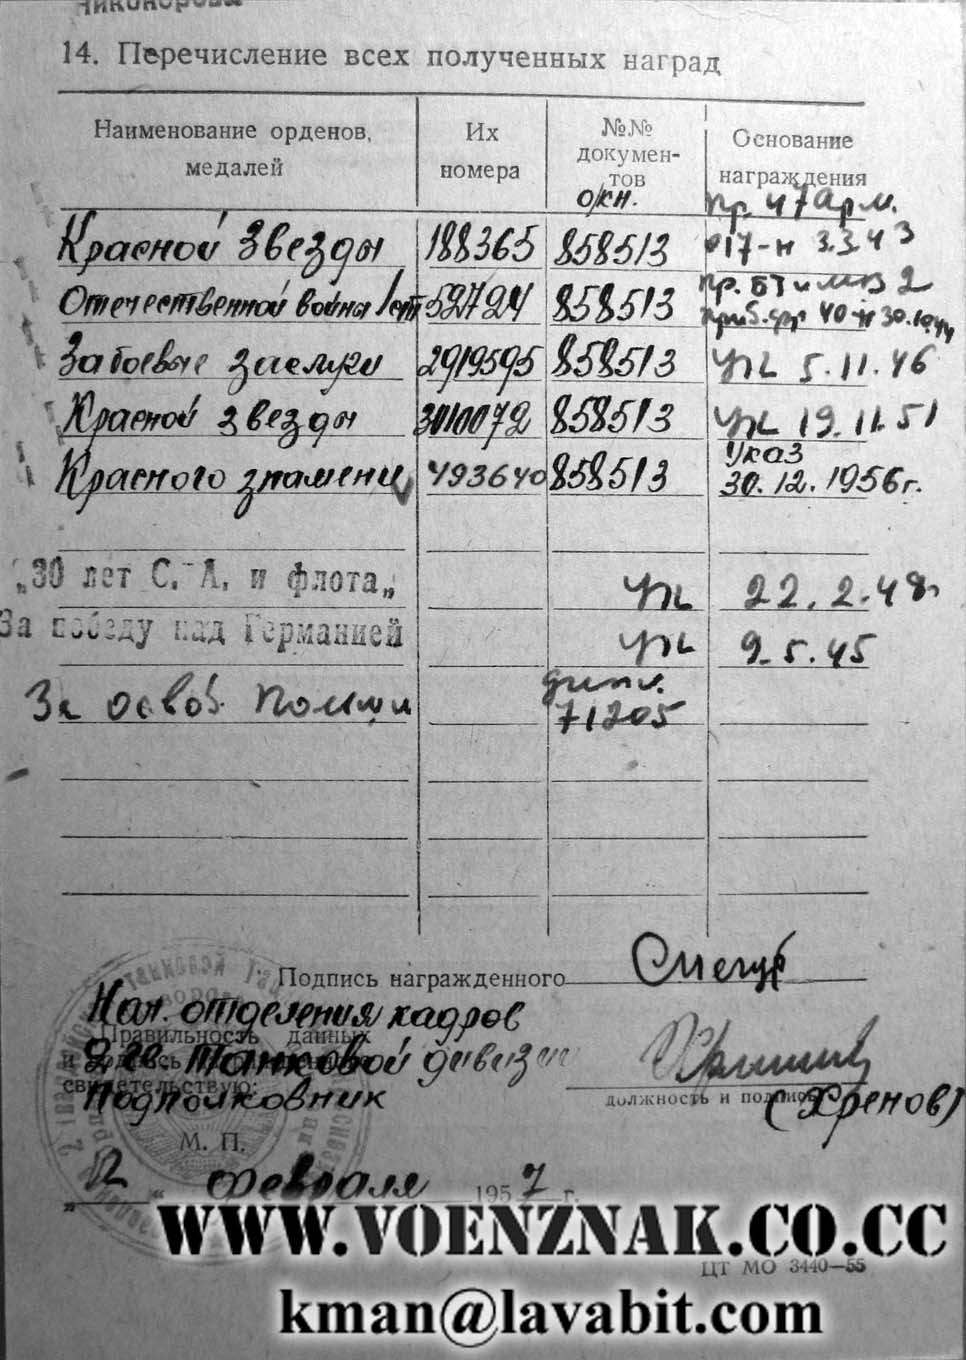 14. Перечисление всех полученных наград
Наименование орденов, медалей
Их номера
№№ докумен-тов
Основание награждения
о/кн. пр. 47 арм.
Красной Звезды 188365 858513 017-н 3.3.43
пр. БТ и МВ 2
Отечественной войны I ст 52724 858513 40-н 30.10.44
За боевые заслуги 2919595 858513 Ук 5.11.46
Красной звезды 3010072 858513 Ук 19.11.51
Указ
Красного знамени 493640 858513 30.12.1956 г.
„30 лет С. А. и флота„ Ук 22.2.48
За победу над Германией Ук 9.5.45
За освоб. 71205
Подпись награжденного
Нач. отделения кадров
Правильность данных
2 гв танковой дивизии
свидетельствую:
Подполковник
должность и подпись
(Хренов)
М. П.
„ 12 “ февраля 1957 г.
WWW.VOENZNAK.CO.CC
ЦТ МО 3440—55
kman@lavabit.com